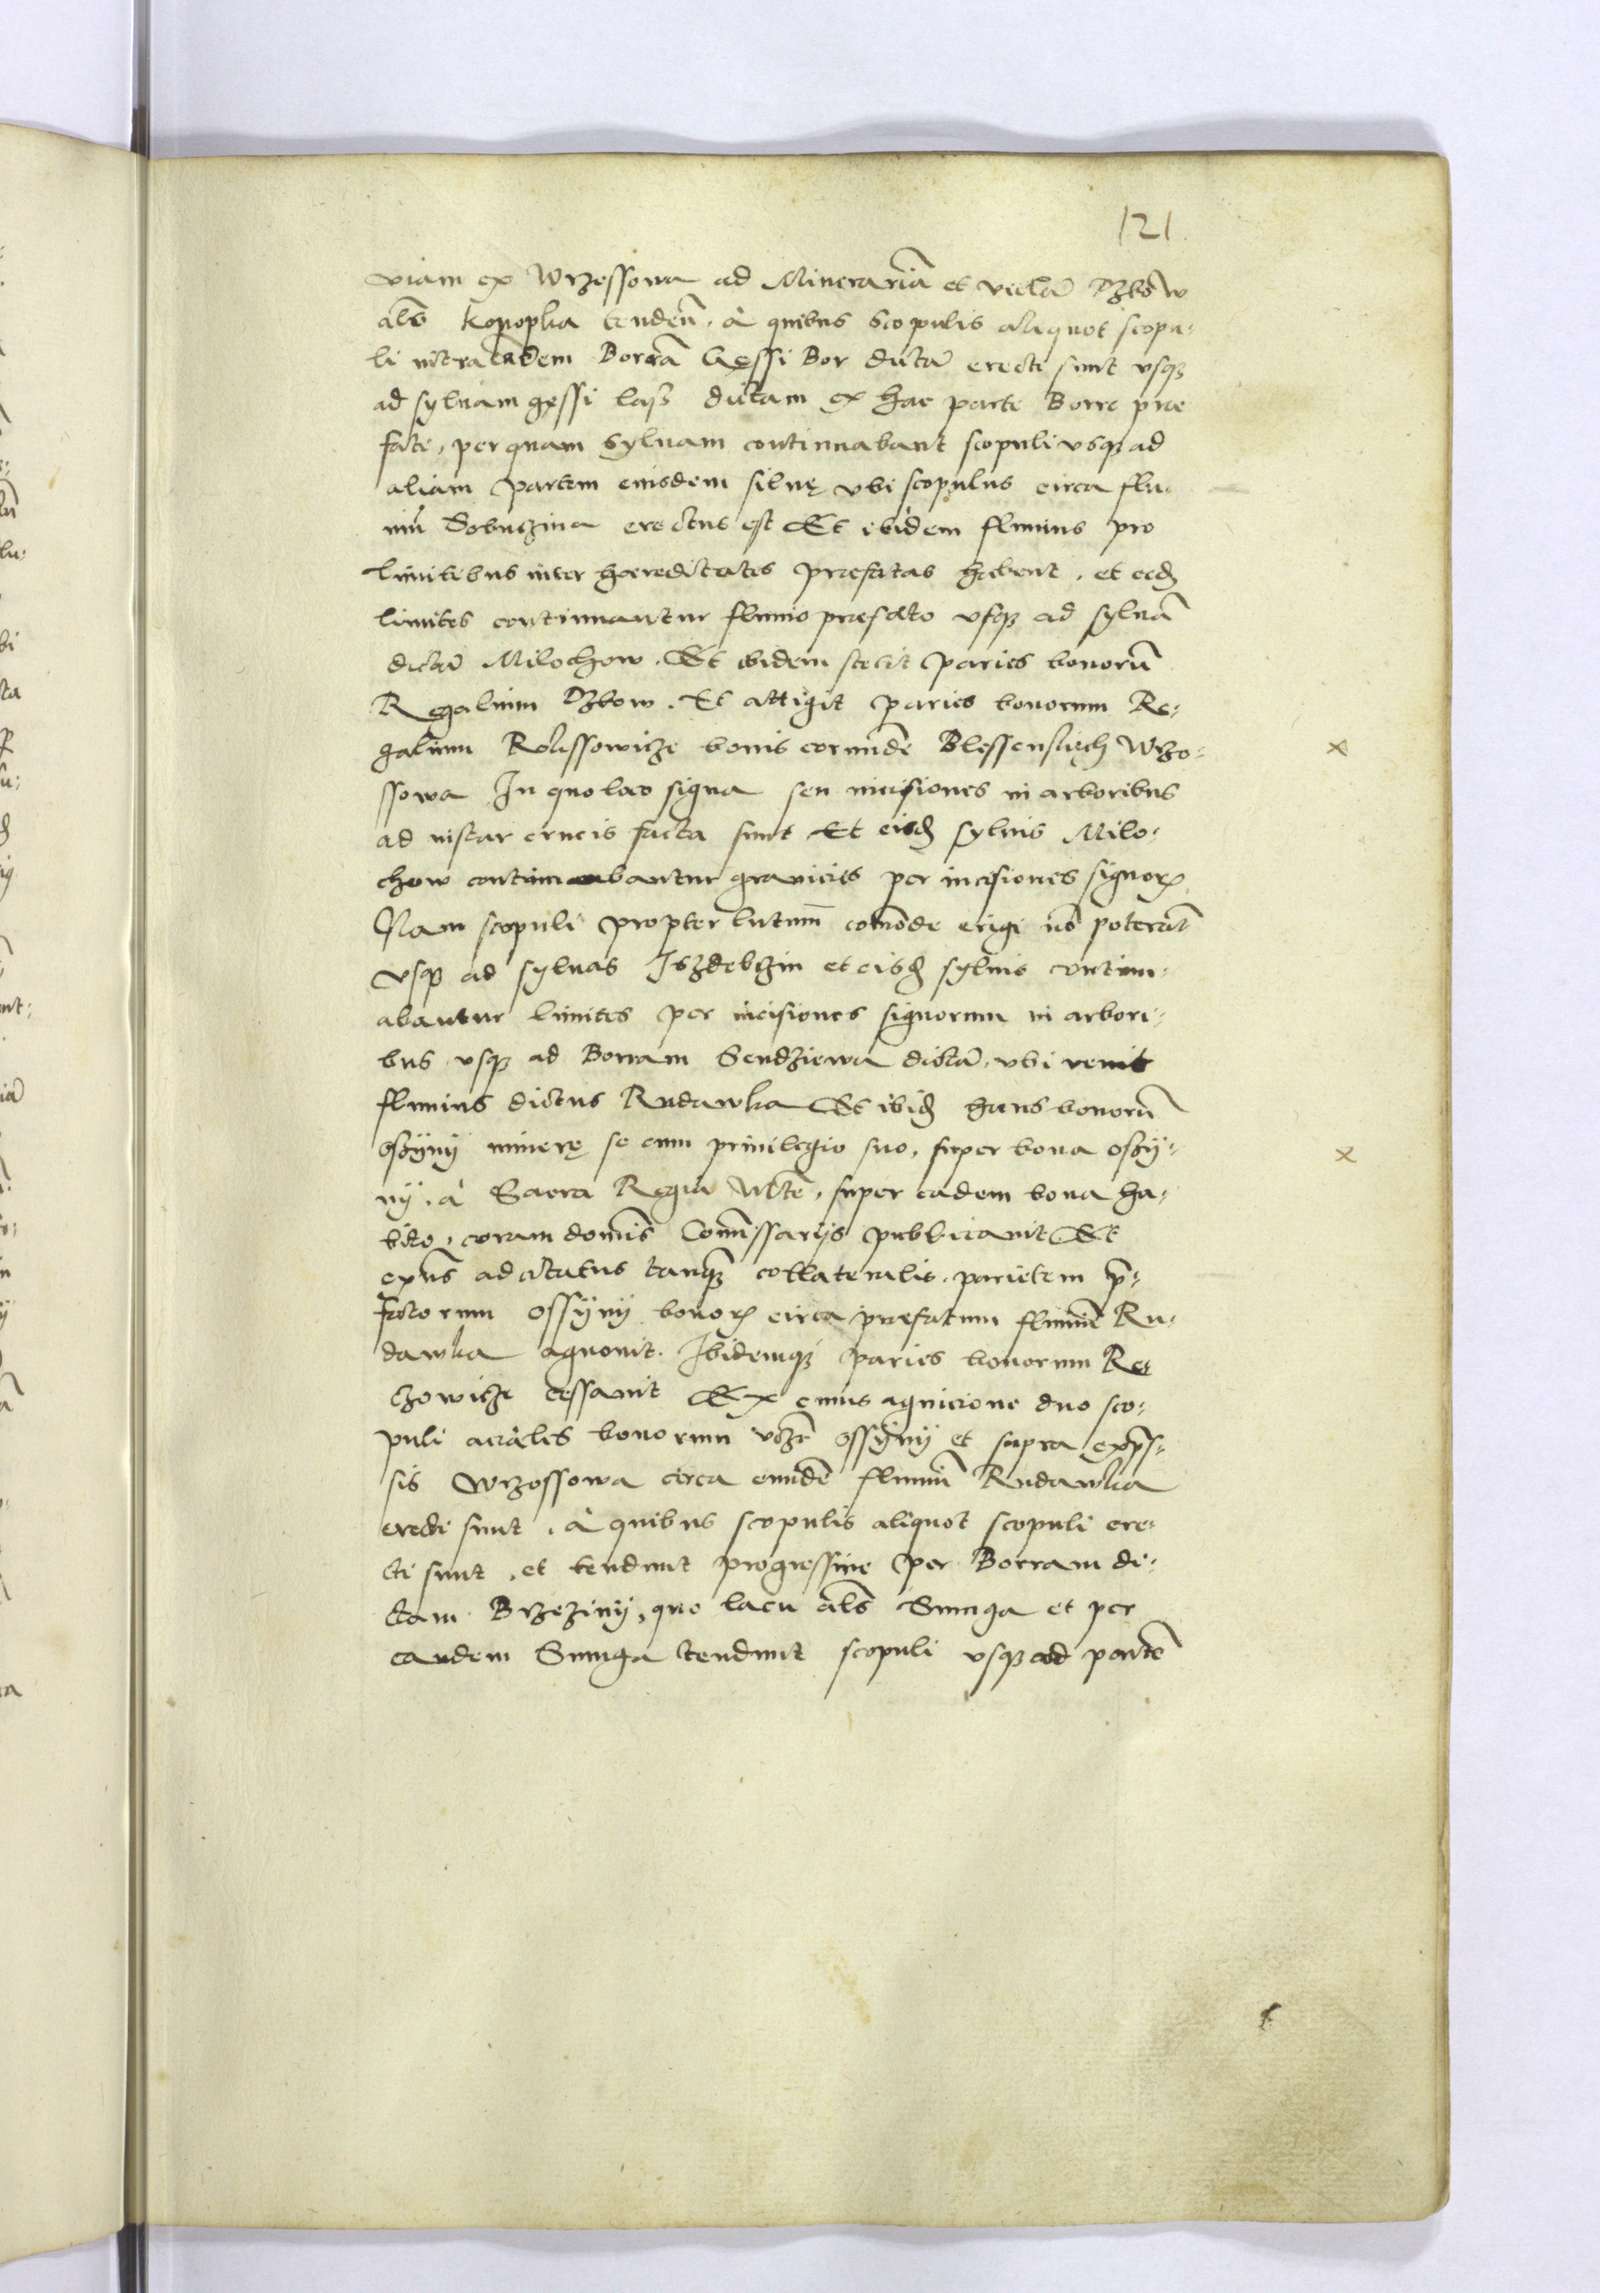 121
viam ex Wrzessowa ad Minerariã et vectã Dzbow
als Konopka tendeñ. à quibus Scopulis aliquot scopu-
li intra eadem Borrã Gessi Bor dictã erecti sunt vsq3
ad syluam gessi lass dictam ex hac parte Borre prae
fate, per quam Syluam continuabant scopuli vsq3 ad
aliam partem eiusdem siluę vbi scopulus circa flu-
uiũ Sobuczina erectus est Et ibidem fluuius pro
limitibus inter haereditates praefatas habent, et eidem
limites continuantur fluuio praefato vsq3 ad syluã
dictã Milochow. Et ibidem stetit paries bonorũ
Regalium Dzbow. Et attigit paries bonorum Re-
galium Rekssowicze bonis eorundẽ Blessenskich Wrzo-
ssowa In quo loco signa seu incisiones in arboribus
ad instar crucis facta sunt Et eisd sylvis Milo-
chow continuabantur granicies per incisiones signor
Nam scopuli propter lutum comode erigi nõ poterãt
vsq3 ad syluas Iszdebczin et eisd syluis continu-
abantur limites per incisiones signorum in arbori-
bus vsq3 ad Borram Sendziewa dictã, vbi venit
fluuius dictus Rudawka Et ibid hans bonorũ
Ossÿnÿ minerę se cum priuilegio suo, super bona ossÿ-
nÿ, à Sacra Regia Mtẽ, super eadem bona ha-
bito, coram domĩs Comissarijs publicauit Et
exñs adcitatus tanq3 collateralis, parietem p-
fatorum Ossÿnÿ bonor circa praefatum fluuiũ Ru-
dawka agnouit. Ibidemq3 paries bonorum Re-
zowicze cessauit Ex cuius agnicione duo sco-
puli aciales bonorum vcz Ossÿnÿ et supra exps-
sis Wrzossowa circa eundẽ fluuiũ Rudawka
erecti sunt, à quibus scopulis aliquot scopuli ere-
cti sunt, et tendunt progressiue per Borram di-
ctam Brzezinÿ, quo lacu als Smuga et per
eandem Smuga tendunt scopuli vsq3 ad partẽ